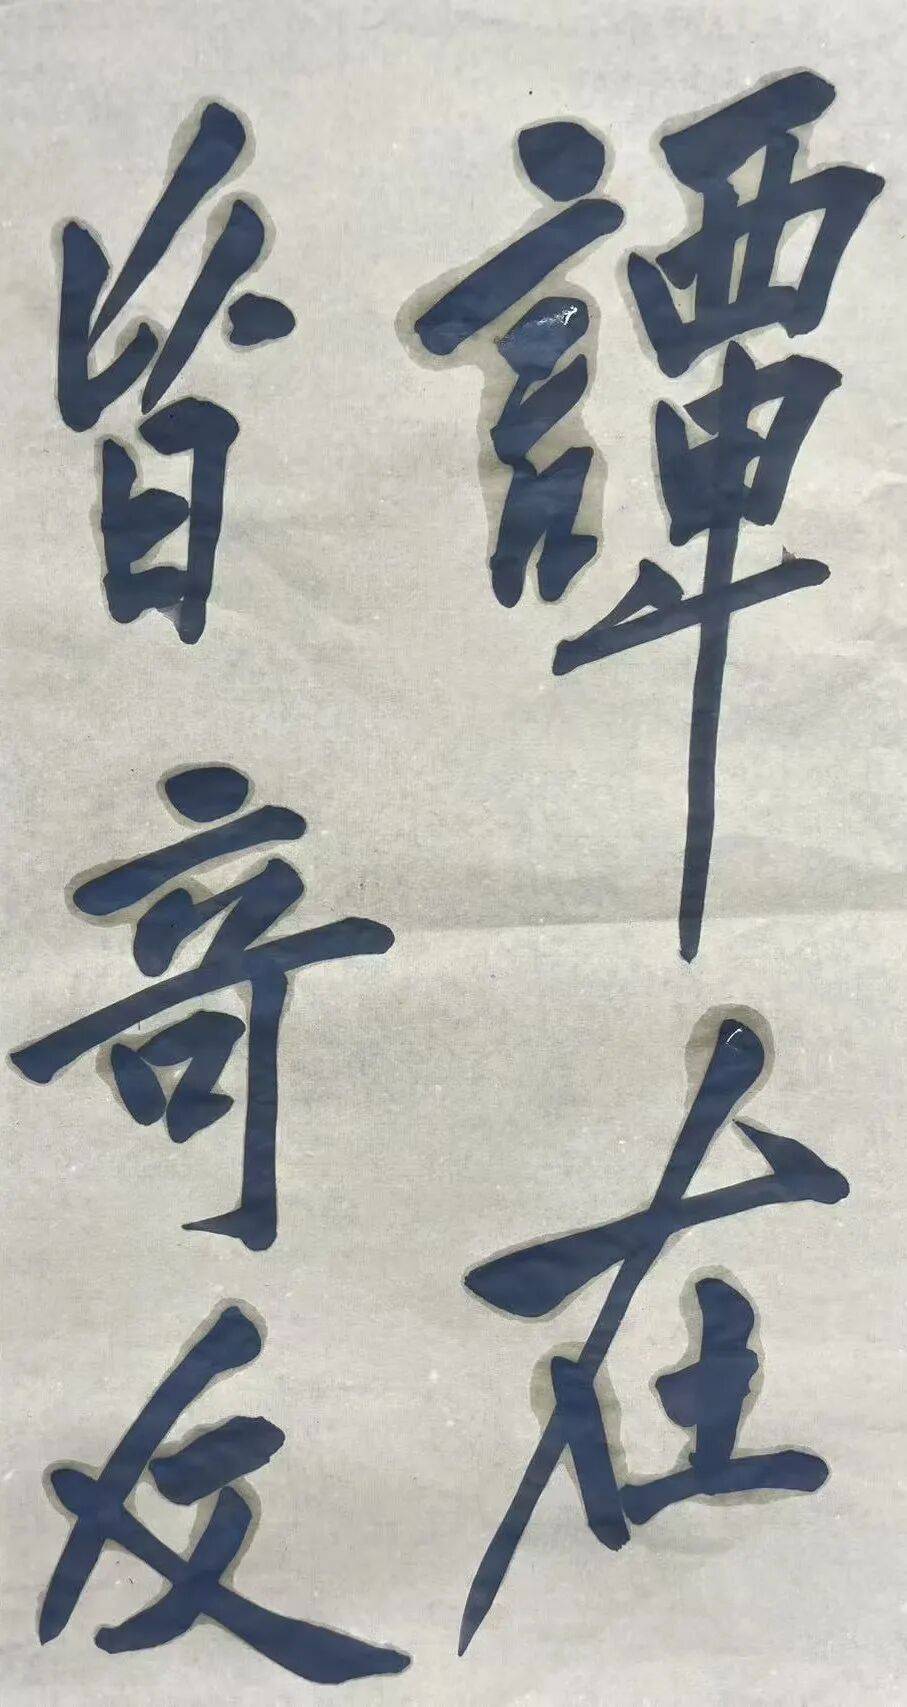 譚在
皆竒友